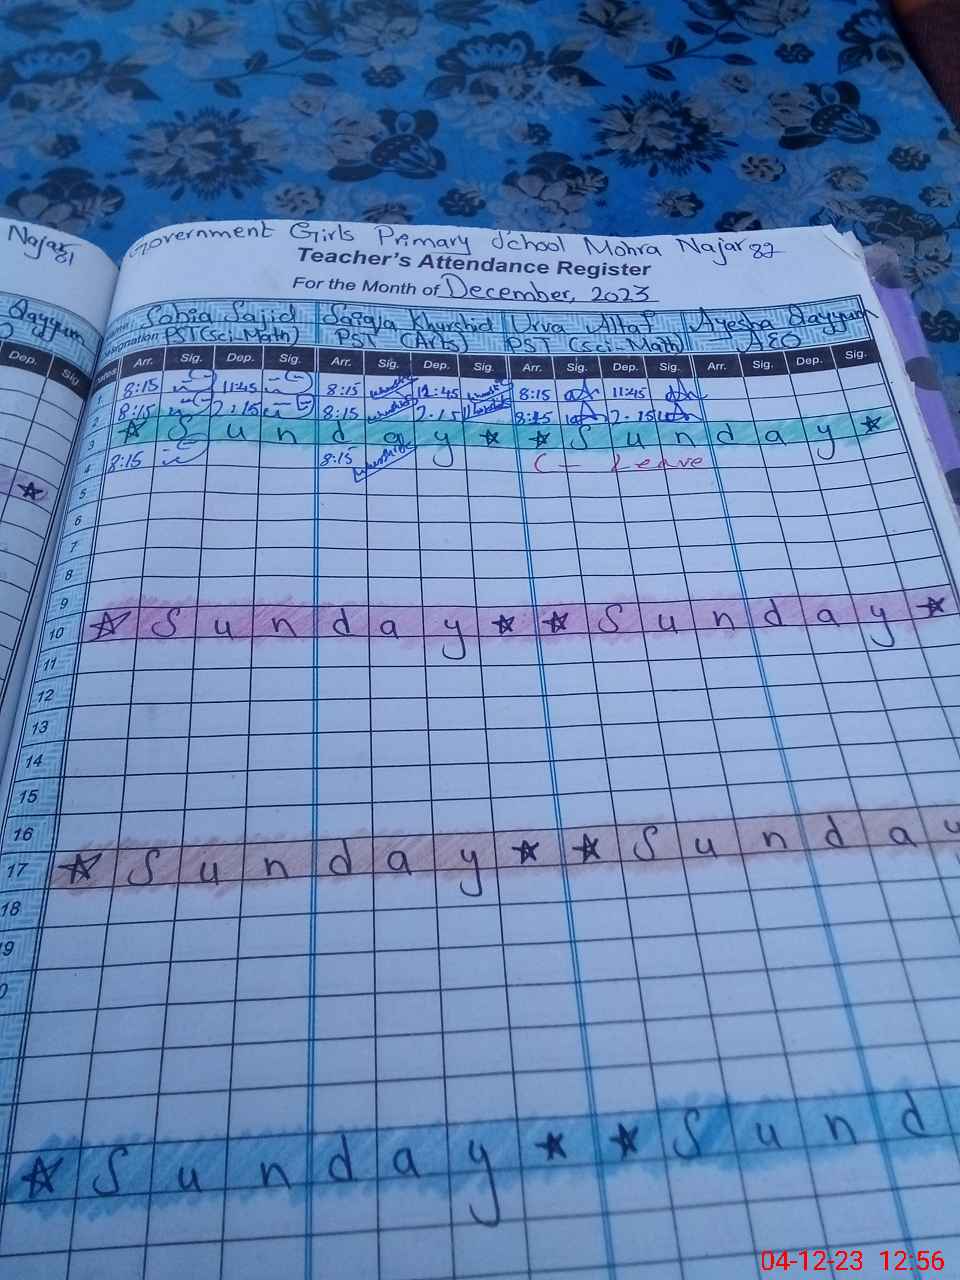 Najar
81
Qayyum
Dep. Sig
Government Girls Primary School Mohra Najar 82
Teacher's Attendance Register
For the Month of December, 2023
Sobia Sajid Saiqa Khurshid Urva Altaf Ayesha Qayyum
Designation PST (Sci-Math) PST (Arts) PST (Sci-Math) AEO
Arr. Sig. Dep. Sig. Arr. Sig. Dep. Sig. Arr. Sig. Dep. Sig. Arr. Sig. Dep. Sig.
1 8:15 11:45 8:15 11:45 8:15 11:45
2 8:15 2:15 8:15 2:15 8:15 2:15
3 Sunday Sunday
4 8:15 8:15 C - Leave
5
6
7
8
9
10 Sunday Sunday
11
12
13
14
15
16
17 Sunday Sunday
18
9
0
Sunday Sund
04-12-23 12:56